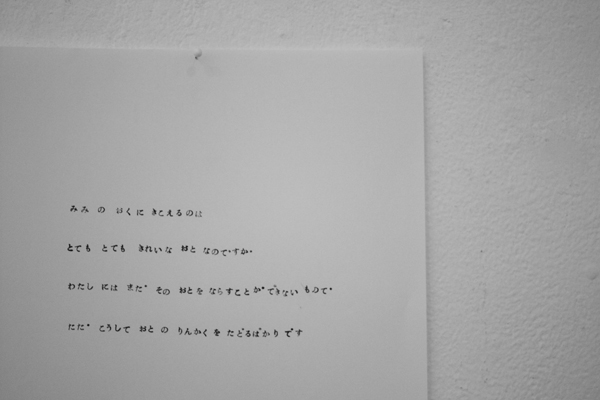 みみ の おくに きこえるのは
とても とても きれいな おと なのですが
わたし には まだ その おとを ならすこと が できない もので
ただ こうして おと の りんかく を たどるばかり です